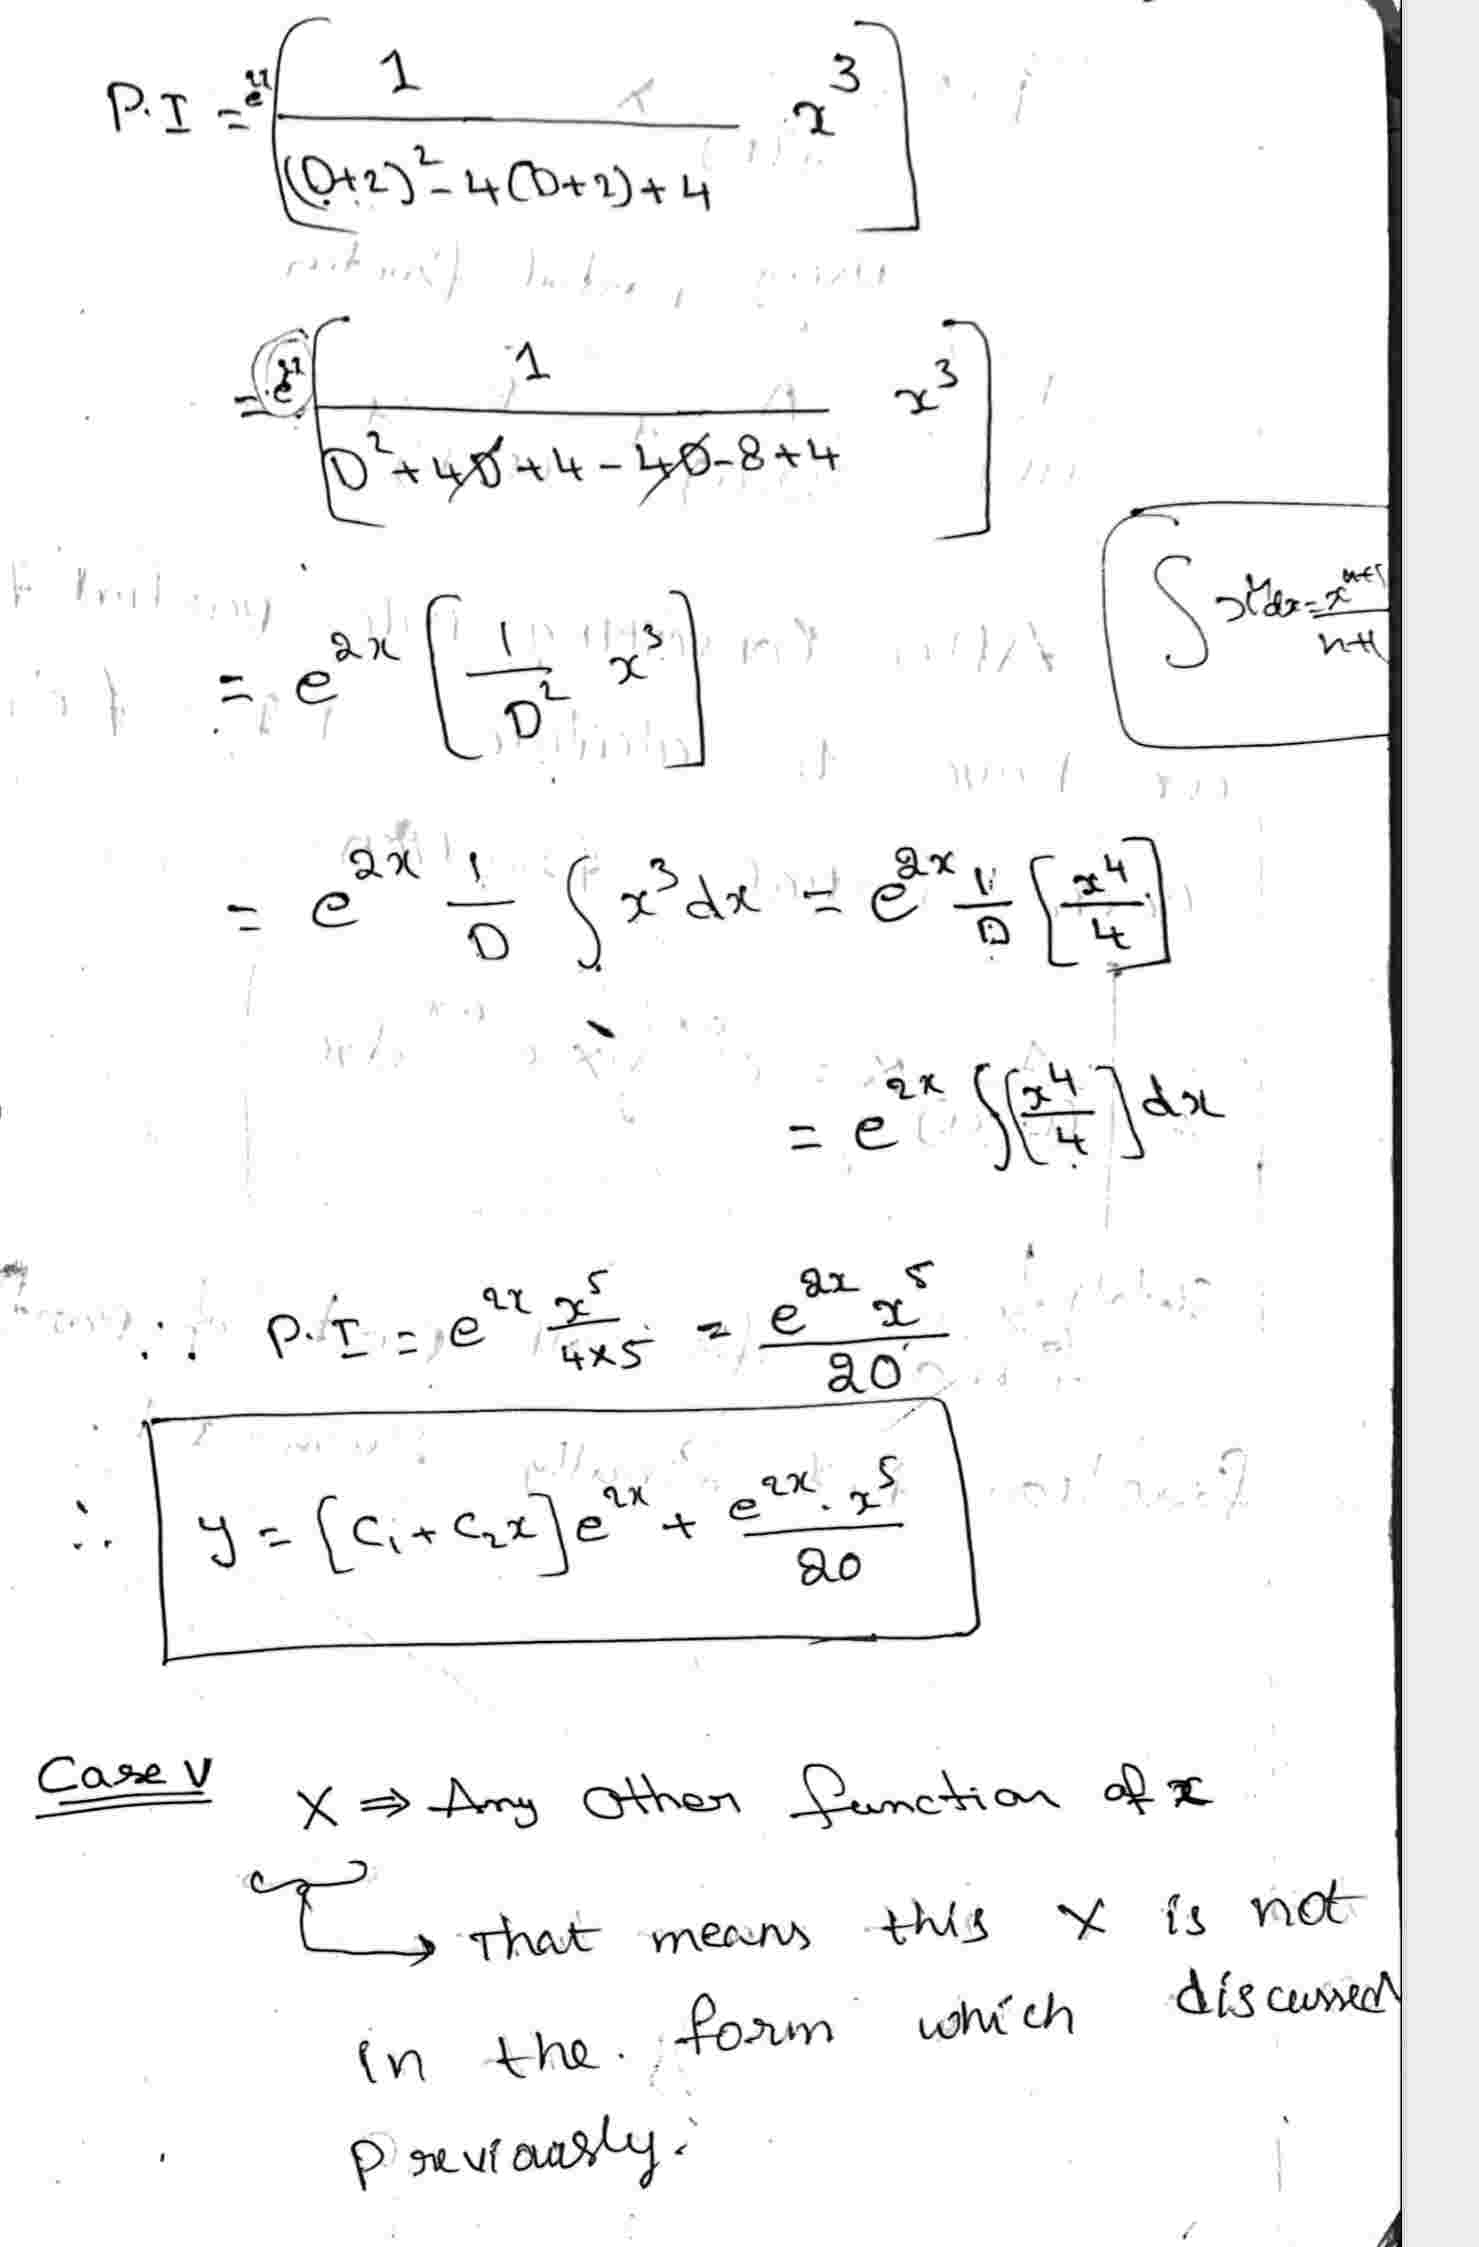 P.I = e^{2x} [ 1 / ((D+2)^2 - 4(D+2) + 4) x^3 ]
= e^{2x} [ 1 / (D^2 + 4D + 4 - 4D - 8 + 4) x^3 ]
∫ x^n dx = x^{n+1} / n+1
= e^{2x} [ 1 / D^2 x^3 ]
= e^{2x} 1/D ∫ x^3 dx = e^{2x} 1/D [ x^4 / 4 ]
= e^{2x} ∫ [ x^4 / 4 ] dx
∴ P.I = e^{2x} x^5 / 4×5 = e^{2x} x^5 / 20
∴ y = [C_1 + C_2 x] e^{2x} + e^{2x} . x^5 / 20
Case V X ⇒ Any other function of x
→ That means this X is not
in the form which discussed
previously.